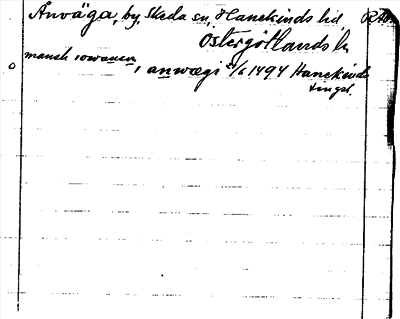 Ånväga, by, Skeda sn, Hanekinds hd RAp
Östergötlands l.
mansk iowanen, i anwægi 21/6 1494 Hanekinds
tingsl.